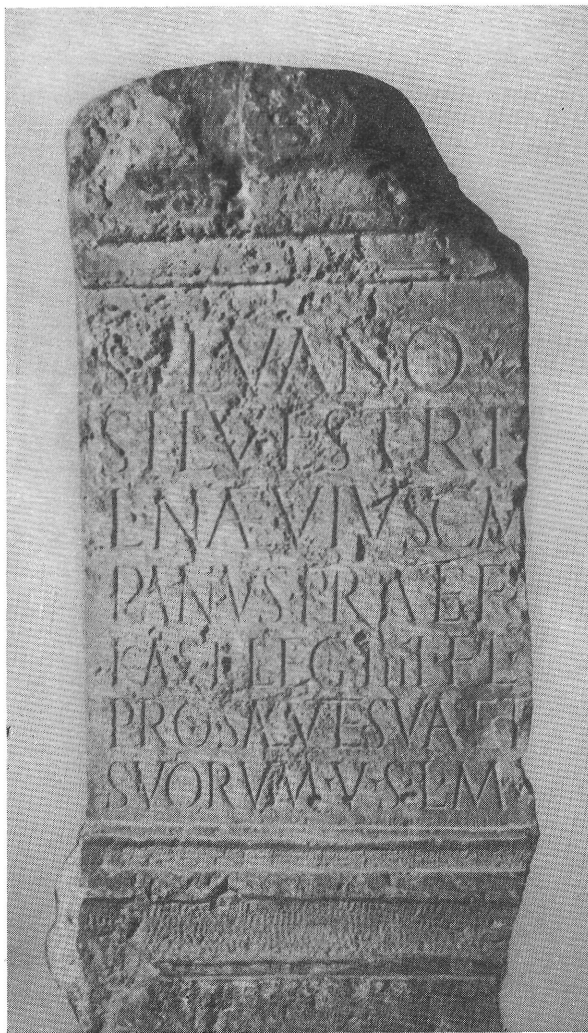 SILVANO
SILVESTRI
L·NAEVIVS CAM
PANVS·PRAEF
KAST·LEG·IIII·FL
PRO SALVTE SVA ET
SVORVM·V·S·L·M